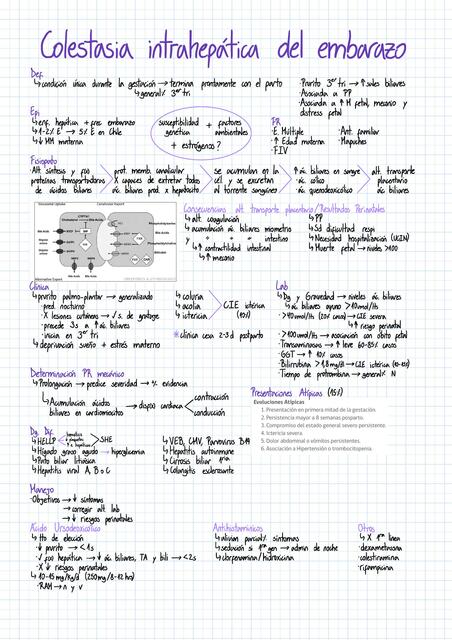 Colestasia intrahepática del embarazo
Def.
↳condición única durante la gestación → termina prontamente con el parto
↳general% 3er tri
·Prurito 3er tri → ↑sales biliares
·Asociada a PP
·Asociada a ↑M fetal, meconio y
distress fetal
Epi
↳enf. hepática + frec embarazo
↳1-2% E → 5% E en Chile
↳↓MM materna
susceptibilidad + factores
genética ambientales
+ estrógenos?
FR
·E. Múltiple
·↑Edad materna
·FIV
·Ant. familiar
·Mapuches
Fisiopato
Alt. síntesis y fco
proteínas transportadoras
de ácidos biliares
prot. memb. canalicular
X capaces de extretar todos
ác. biliares prod. x hepatocito
se acumulan en la
cél y se excretan
al torrente sangíneo
↑ác. biliares en sangre
ác. cólico
ác. quenodeoxicólico
alt. transporte
placentario
ác. biliares
Consecuencias alt. transporte placentario/Resultados Perinatales
↳alt. coagulación
↳acumulación ác. biliares miometrio
intestino
↳↑contractilidad intestinal
↳↑meconio
↳PP
↳Sd dificultad respi
↳Necesidad hospitalización (UCIN)
↳Muerte fetal → niveles >100
Clínica
↳prurito palmo-plantar → generalizado
·pred. nocturno
·X lesiones cutáneas → l/s. de grataje
·precede 3s a ↑ác. biliares
·inicia en 3er tri
↳deprivación sueño + estrés materno
↳coluria
↳acolia
↳ictericia
CIE ictérica
(10%)
*clínica cesa 2-3 d postparto
Lab
↳Dg y Gravedad → niveles ác. biliares
↳ác. biliares ayuno >10mmol/lt
·>40mmol/lts (20% casos) → CIE severa
↳↑riesgo perinatal
·>100mmol/lts → asociación con óbito fetal
↳Transaminasas → ↑leve 60-85% casos
↳GGT → ↑ 10% casos
↳Bilirrubina >1,8mg/dl → CIE ictérica (10-15%)
↳Tiempo de protrombina → general% N
Determinación PR mecánico
↳Prolongación → predice severidad → % evidencia
↳Acumulación ácidos
biliares en cardiomiocitos → dispo cardiaca
contracción
conducción
Presentaciones Atípicas (15%)
Evoluciones Atípicas
1. Presentación en primera mitad de la gestación.
2. Persistencia mayor a 8 semanas posparto.
3. Compromiso del estado general severo persistente.
4. Ictericia severa.
5. Dolor abdominal o vómitos persistentes.
6. Asociación a Hipertensión o trombocitopenia.
Dg. Dif.
↳HELLP
SHE
↳Hígado graso agudo → hipoglicemia
↳Pato biliar litiásica
↳Hepatitis viral A, B o C
↳VEB, CMV, Parvovirus B19
↳Hepatitis autoinmune
↳Cirrosis biliar 1ria
↳Colangitis esclerosante
Manejo
·Objetivos → ↓ síntomas
→ corregir alt. lab
→ ↓ riesgos perinatales
Ácido Ursodeoxicólico
↳tto de elección
·↓prurito → <1s
·√ fco hepática → ↓ ác. biliares, TA y bili → <2s
·X ↓ riesgos perinatales
↳10-15 mg/kg/d (250mg/8-12 hrs)
·RAM → n y v
Antihistamínicos
↳alivian parcial% síntomas
↳sedación si 1era gen → admin de noche
↳clorfenamina/hidroxicina
Otros
·X 1era línea
·dexametasona
·colestiramina
·rifampicina